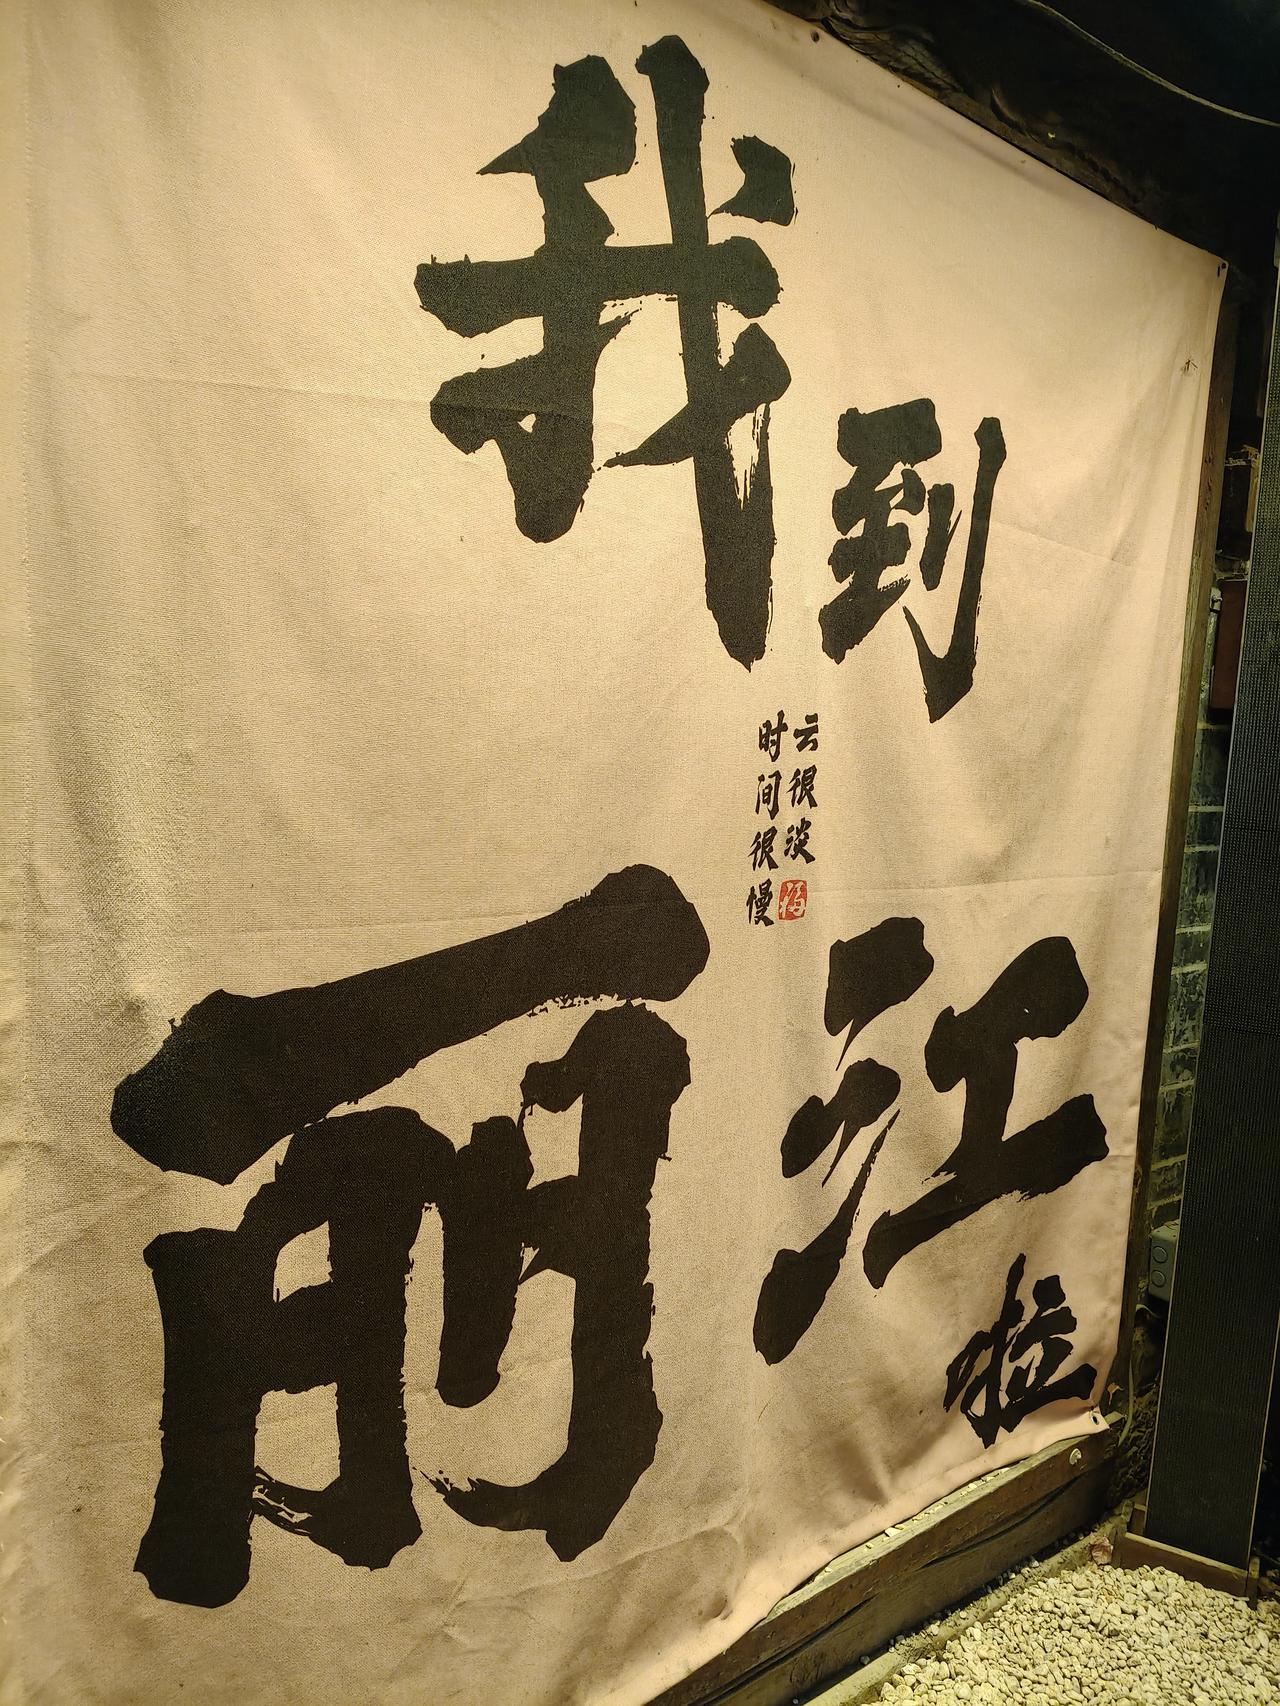 我到
丽江
啦
云很淡
时间很慢
福